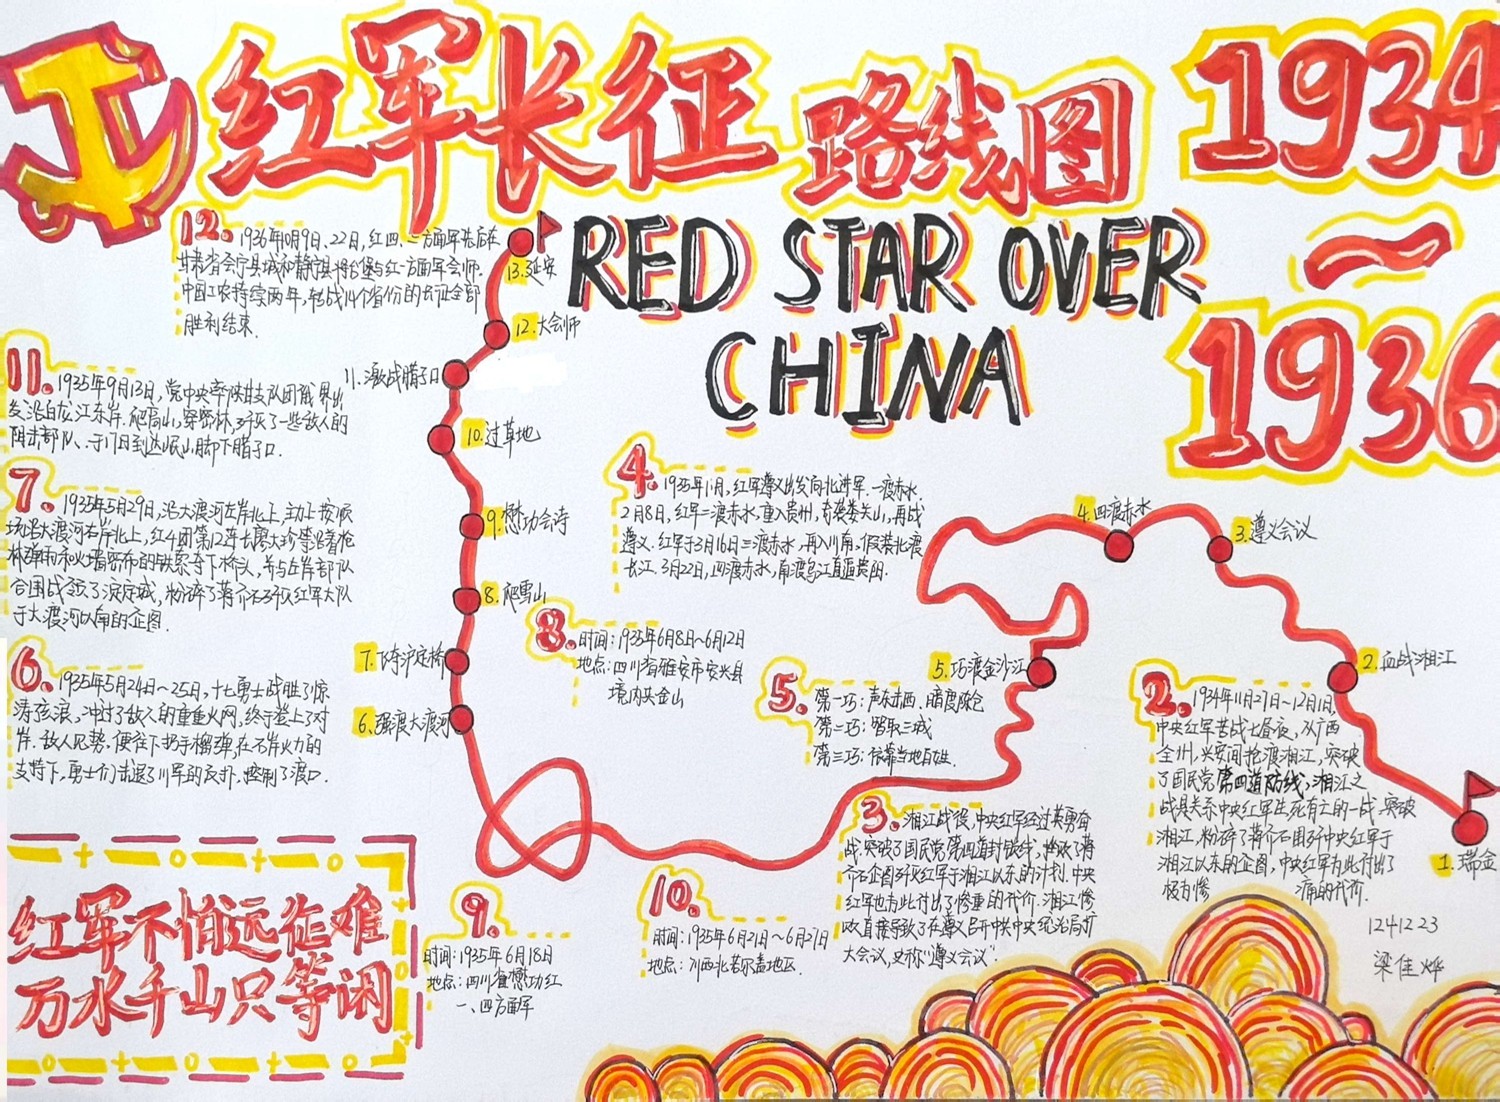 红军长征路线图
1934
~
1936
RED STAR OVER
CHINA
12.
1936年10月9日、22日,红四、二方面军先后在
甘肃省会宁县城和静宁县将台堡与红一方面军会师。
中国工农持续两年,转战14个省份的长征全部
胜利结束.
13.延安
12.大会师
11.激战腊子口
10.过草地
9.懋功会诗
8.爬雪山
7.飞夺泸定桥
6.强渡大渡河
5.巧渡金沙江
4.四渡赤水
3.遵义会议
2.血战湘江
1.瑞金
11.
1935年9月13日,党中央率陕甘支队
发沿白龙江东岸.爬高山,穿密林,歼灭了一些敌人的
阻击部队.于17日到达岷山脚下腊子口.
7.
1935年5月29日,沿大渡河左岸北上,主动上按顺
场沿大渡河右岸北上,红4团第12连长廖大珍等冒着枪
林弹雨和火墙密布的铁索夺下桥头,并与左岸部队
合围战领了泸定城,粉碎了蒋介石歼灭红军大队
于大渡河以南的企图.
6.
1935年5月24日~25日,十七勇士战胜了惊
涛骇浪,冲过了敌人的重重火网,终于登上了对
岸.敌人见势,便往下扔手榴弹,在右岸火力的
支持下,勇士们击退了川军的反扑,控制了渡口.
4.
1935年1月,红军遵义出发向北进军.一渡赤水.
2月8日,红军二渡赤水,重入贵州,夺娄娄关山,再战
遵义.红军于3月16日三渡赤水,再入川南,假装北渡
长江.3月22日,四渡赤水,南渡乌江直逼贵阳.
8.
时间:1935年6月8日~6月12日
地点:四川省雅安市安兴县
境内夹金山
5.
第一巧:声东击西.暗度陈仓
第二巧:智取三城
第三巧:依靠当地百姓.
2.
1934年11月27日~12月1日,
中央红军苦战七昼夜,从广西
全州,兴安间抢渡湘江,突破
了国民党第四道防线,湘江之
战是关系中央红军生死存亡的一战.突破
湘江,粉碎了蒋介石围歼中央红军于
湘江以东的企图,中央红军为此付出了
极为惨痛的代价.
3.
湘江战役,中央红军经过英勇奋
战.突破了国民党第四道封锁线,粉碎了蒋
介石企图歼灭红军于湘江以东的计划.中央
红军也为此付出了惨重的代价.湘江惨
败直接导致了在遵义召开中共中央政治局扩
大会议,史称"遵义会议".
9.
时间:1935年6月18日
地点:四川省懋功红
一、四方面军
10.
时间:1935年6月21日~6月27日
地点:川西北若尔盖地区.
红军不怕远征难
万水千山只等闲
1241223
梁佳烨